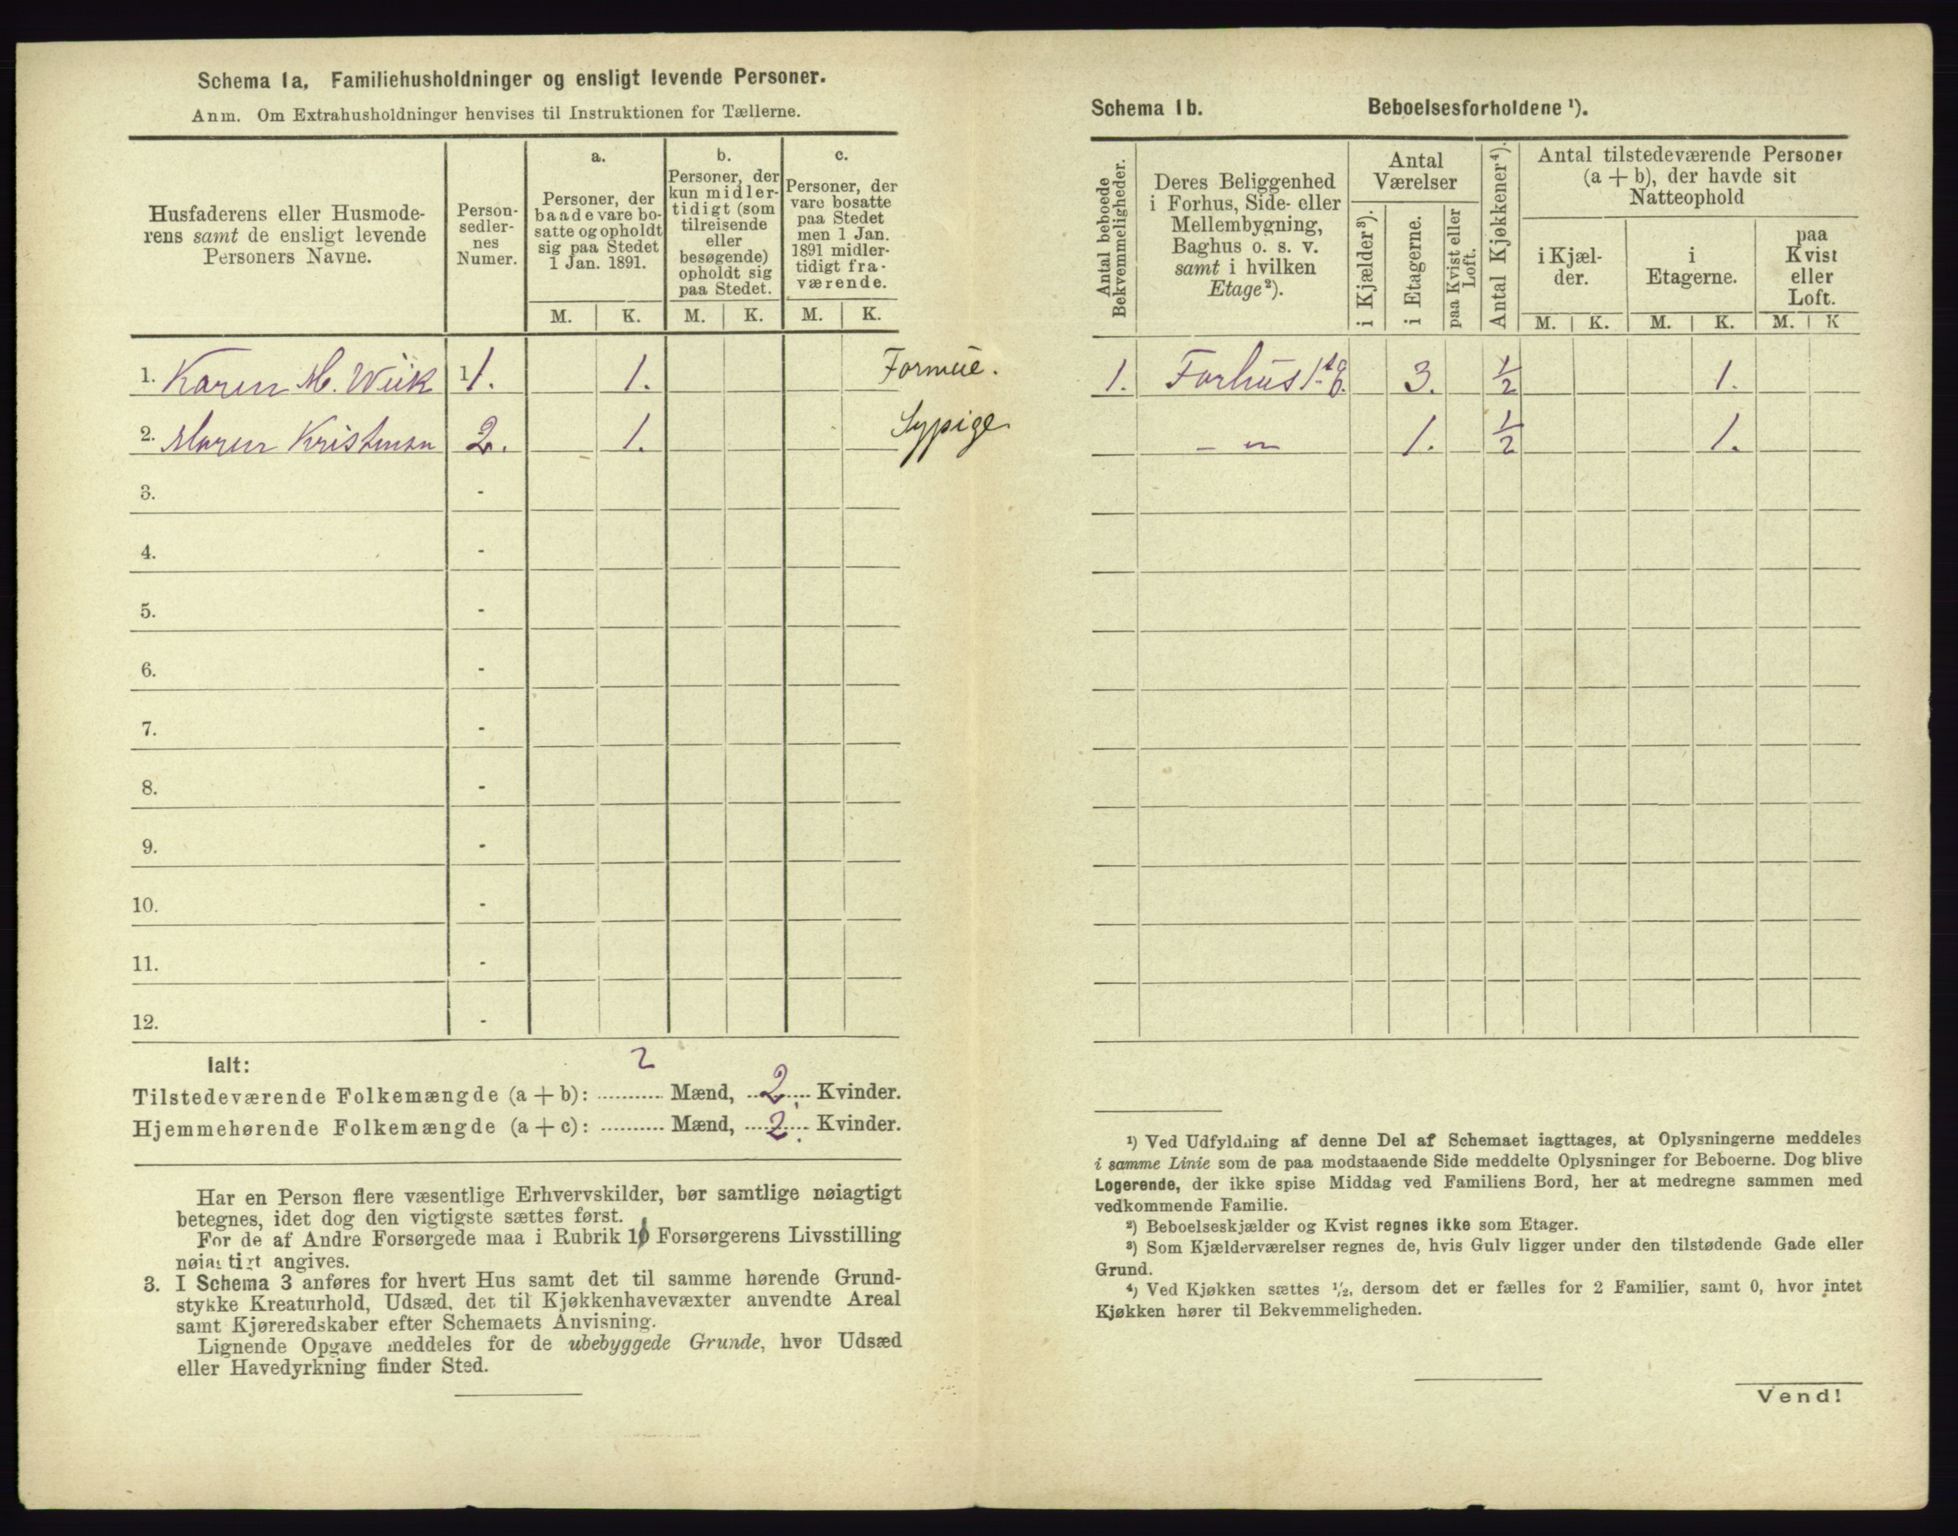 Schema 1a. Familiehusholdninger og ensligt levende Personer.
Anm. Om Extrahusholdninger henvises til Instruktionen for Tællerne.
Husfaderens eller Husmode-
rens samt de ensligt levende
Personers Navne.
Person-
sedler-
nes
Numer.
a.
Personer, der
baade vare bo-
satte og opholdt
sig paa Stedet
1 Jan. 1891.
b.
Personer, der
kun midler-
tidigt (som
tilreisende
eller
besøgende)
opholdt sig
paa Stedet.
c.
Personer, der
vare bosatte
paa Stedet
men 1 Jan.
1891 midler-
tidigt fra-
værende.
M. K. M. K. M. K.
1. Karen M. Wiik 1. 1. Formue.
2. Maren Kristensen 2. 1. Sypige
3. -
4. -
5. -
6. -
7. -
8. -
9. -
10. -
11. -
12. -
2
Ialt:
Tilstedeværende Folkemængde (a + b): Mænd, 2. Kvinder.
Hjemmehørende Folkemængde (a + c): Mænd, 2. Kvinder.
Har en Person flere væsentlige Erhvervskilder, bør samtlige nøiagtigt
betegnes, idet dog den vigtigste sættes først.
For de af Andre Forsørgede maa i Rubrik 10 Forsørgerens Livsstilling
nøiagtigt angives.
3. I Schema 3 anføres for hvert Hus samt det til samme hørende Grund-
stykke Kreaturhold, Udsæd, det til Kjøkkenhavevæxter anvendte Areal
samt Kjøreredskaber efter Schemaets Anvisning.
Lignende Opgave meddeles for de ubebyggede Grunde, hvor Udsæd
eller Havedyrkning finder Sted.
Schema 1b. Beboelsesforholdene ¹).
Antal beboede
Bekvemmeligheder.
Deres Beliggenhed
i Forhus, Side- eller
Mellembygning,
Baghus o. s. v.
samt i hvilken
Etage²).
Antal
Værelser
i Kjælder³).
i Etagerne.
paa Kvist eller
Loft.
Antal Kjøkkener⁴).
Antal tilstedeværende Personer
(a + b), der havde sit
Natteophold
i Kjæl-
der.
i
Etagerne.
paa
Kvist
eller
Loft.
M. K. M. K. M. K
1. Forhus 1.st E. 3. ½ 1.
- " 1. ½ 1.
¹) Ved Udfyldning af denne Del af Schemaet iagttages, at Oplysningerne meddeles
i samme Linie som de paa modstaaende Side meddelte Oplysninger for Beboerne. Dog blive
Logerende, der ikke spise Middag ved Familiens Bord, her at medregne sammen med
vedkommende Familie.
²) Beboelseskjælder og Kvist regnes ikke som Etager.
³) Som Kjælderværelser regnes de, hvis Gulv ligger under den tilstødende Gade eller
Grund.
⁴) Ved Kjøkken sættes ½, dersom det er fælles for 2 Familier, samt 0, hvor intet
Kjøkken hører til Bekvemmeligheden.
Vend!